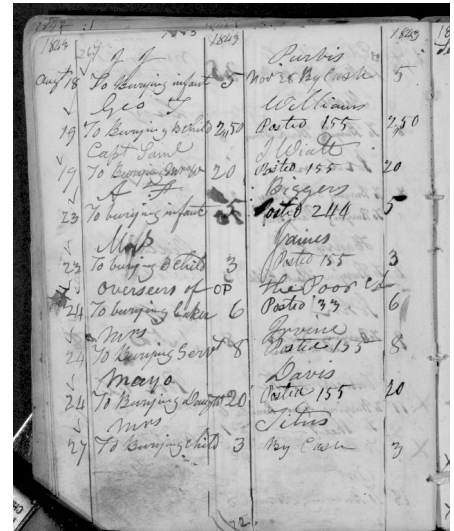 1843 1843 1843
267
J J Purvis
Aug 18 To Burying infant 5 Nov 28 By Cash 5
Geo Williams
19 To Burying Child 2,50 Posted 155 2,50
Capt Saml J Wiatt
19 To Burying 20 Posted 155 20
A Biggers
23 To burying infant 5 Posted 244 5
Mrs Jaines
23 To burying Child 3 Posted 155 3
Overseers of OP the Poor
24 To burying 6 Posted 33 6
Mrs Irvine
24 To Burying Servt 8 Posted 155 8
Mayo Davis
24 To Burying Daught 20 Posted 155 20
Mrs Titus
27 To Burying Child 3 By Cash 3
72